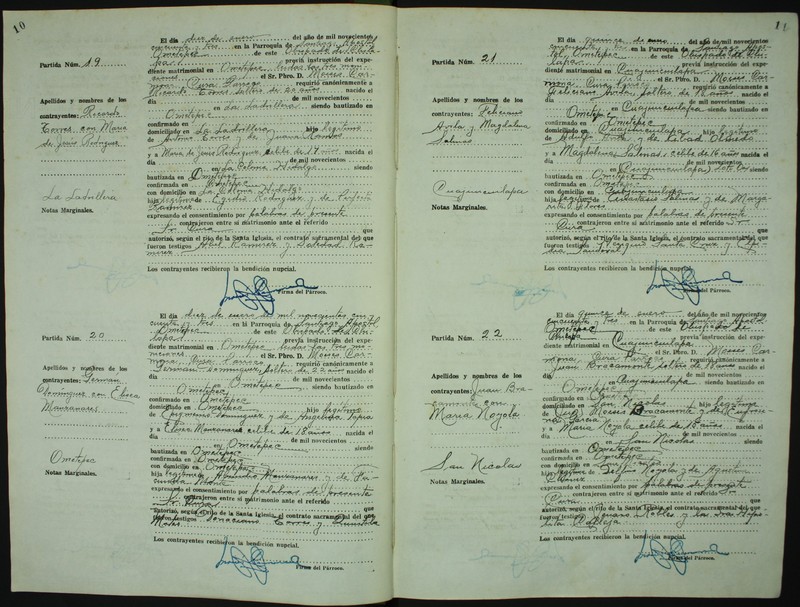 10
Partida Núm. 19
Apellidos y nombres de los
contrayentes: Ricardo
Torres con Maria
de Jesús Rodriguez
La Ladrillera
Notas Marginales.
El día diez de enero del año de mil novecientos
cincuenta y tres en la Parroquia de Santiago Apostol
Ometepec de este Obispado de
previa instrucción del expe-
diente matrimonial en Ometepec leidas las tres mo-
niciones el Sr. Pbro. D. Moises Car-
mona Cura Parroco requirió canónicamente a
Ricardo Torres soltero de 22 años nacido el
día de mil novecientos
en La Ladrillera siendo bautizado en
Ometepec
confirmado en
domiciliado en La Ladrillera hijo legítimo
de Antonio Torres y de Juana
y a Maria de Jesús Rodriguez célibe de 17 años nacida el
día de mil novecientos
en La Colonia Hidalgo siendo
bautizada en Ometepec
confirmada en Ometepec
con domicilio en La Colonia Hidalgo
hija legítima de Egidio Rodriguez y de
Ramirez
expresando el consentimiento por palabras de presente
contrajeron entre sí matrimonio ante el referido
Sr. Cura que
autorizó, según el rito de la Santa Iglesia, el contrato sacramental del que
fueron testigos Abel Ramirez y Soledad Ra-
mirez
Los contrayentes recibieron la bendición nupcial.
Firma del Párroco.
Partida Núm. 20
Apellidos y nombres de los
contrayentes: German
Dominguez con Elvira
Manzanares
Ometepec
Notas Marginales.
El día diez de enero de mil novecientos cin-
cuenta y tres en la Parroquia de Santiago Apostol
Ometepec de este Obispado de
previa instrucción del expe-
diente matrimonial en Ometepec leidas las tres mo-
niciones el Sr. Pbro. D. Moises Car-
mona Cura Parroco requirió canónicamente a
German Dominguez soltero de 22 años nacido el
día de mil novecientos
en Ometepec siendo bautizado en
Ometepec
confirmado en Ometepec
domiciliado en Ometepec hijo legítimo
de Dominguez y de Angelina Tapia
y a Elvira Manzanares célibe de 18 años nacida el
día de mil novecientos
en Ometepec siendo
bautizada en Ometepec
confirmada en Ometepec
con domicilio en Ometepec
hija legítima Manzanares y de
expresando el consentimiento por palabras de presente
contrajeron entre sí matrimonio ante el referido
Sr. Cura que
autorizó, según el rito de la Santa Iglesia, el contrato sacramental del que
fueron testigos Torres y
Los contrayentes recibieron la bendición nupcial.
Firma del Párroco.
11
Partida Núm. 21
Apellidos y nombres de los
contrayentes: Feliciano
y Magdalena
Salinas
Cuajinicuilapa
Notas Marginales.
El día quince de enero del año de mil novecientos
cincuenta y tres en la Parroquia de Santiago Apos-
tol, Ometepec de este Obispado de Chi-
lapa previa instrucción del expe-
diente matrimonial en Cuajinicuilapa
el Sr. Pbro. D. Moises Car-
mona, Cura Parroco requirió canónicamente a
Feliciano soltero de 18 años nacido el
día de mil novecientos
en Cuajinicuilapa siendo bautizado en
Ometepec
confirmado en Ometepec
domiciliado en Cuajinicuilapa hijo legítimo
de y de
y a Magdalena Salinas célibe de 16 años nacida el
día de mil novecientos
en Cuajinicuilapa siendo
bautizada en Ometepec
confirmada en Ometepec
con domicilio en Cuajinicuilapa
hija legítima de Anastasio Salinas y de Marga-
rita
expresando el consentimiento por palabras de presente
contrajeron entre sí matrimonio ante el referido Sr.
Cura que
autorizó, según el rito de la Santa Iglesia, el contrato sacramental del que
fueron testigos Santa Cruz y
Sandoval
Los contrayentes recibieron la bendición nupcial.
Firma del Párroco.
Partida Núm. 22
Apellidos y nombres de los
contrayentes: Juan Bra-
camonte con
Maria Noyola
San Nicolas
Notas Marginales.
El día quince de enero del año de mil novecientos
cincuenta y tres en la Parroquia de Santiago Apostol
Ometepec de este Obispado de
Chilapa previa instrucción del expe-
diente matrimonial en Cuajinicuilapa
el Sr. Pbro. D. Moises Car-
mona, Cura Parroco requirió canónicamente a
Juan Bracamonte soltero de 18 años nacido el
día de mil novecientos
en Cuajinicuilapa siendo bautizado en
Ometepec
confirmado en
domiciliado en San Nicolas hijo legítimo
de Moises Bracamonte y de
Garcia
y a Maria Noyola célibe de 18 años nacida el
día de mil novecientos
en San Nicolas siendo
bautizada en Ometepec
confirmada en Ometepec
con domicilio en
hija legítima Delfino Noyola y de Agustina
expresando el consentimiento por palabras de presente
contrajeron entre sí matrimonio ante el referido Sr.
Cura que
autorizó, según el rito de la Santa Iglesia, el contrato sacramental del que
fueron testigos Robles y
Calleja
Los contrayentes recibieron la bendición nupcial.
Firma del Párroco.